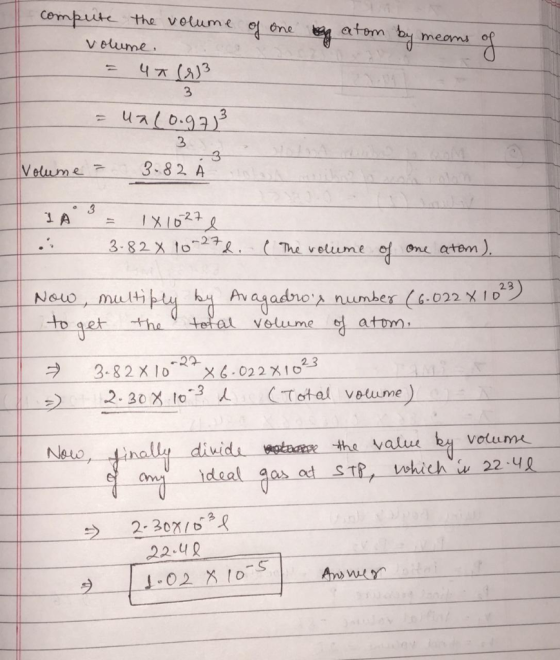 compute the volume of one atom by means of
volume.
= 4π(r)³
3
= 4π(0.97)³
3
Volume = 3.82 Å³
1 A°³ = 1×10⁻²⁷ l
∴ 3.82 × 10⁻²⁷ l. (The volume of one atom).
Now, multiply by Avagadro's number (6.022 × 10²³)
to get the total volume of atom.
⇒ 3.82 × 10⁻²⁷ × 6.022 × 10²³
⇒ 2.30 × 10⁻³ l (Total volume)
Now, finally divide the value by volume
of any ideal gas at STP, which is 22.4 l
⇒ 2.30×10⁻³ l
22.4 l
⇒ 1.02 × 10⁻⁵ Answer